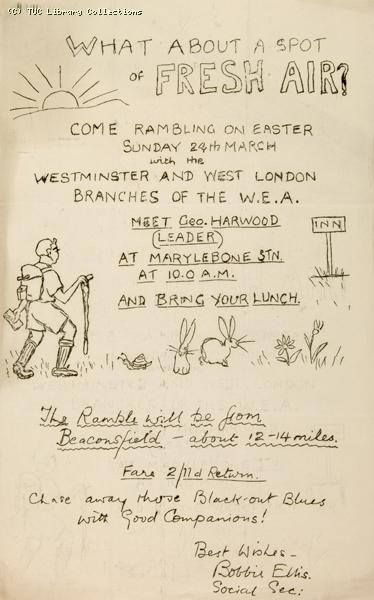 (C) TUC Library Collections
WHAT ABOUT A SPOT
OF FRESH AIR?
COME RAMBLING ON EASTER
SUNDAY 24th MARCH
with the
WESTMINSTER AND WEST LONDON
BRANCHES OF THE W.E.A.
MEET Geo. HARWOOD
(LEADER)
AT MARYLEBONE STN.
AT 10.0 A.M.
AND BRING YOUR LUNCH.
INN
The Ramble will be from
Beaconsfield – about 12-14 miles.
Fare 2/11d Return.
Chase away those Black-out Blues
with Good Companions!
Best Wishes –
Bobbie Ellis.
Social Sec: